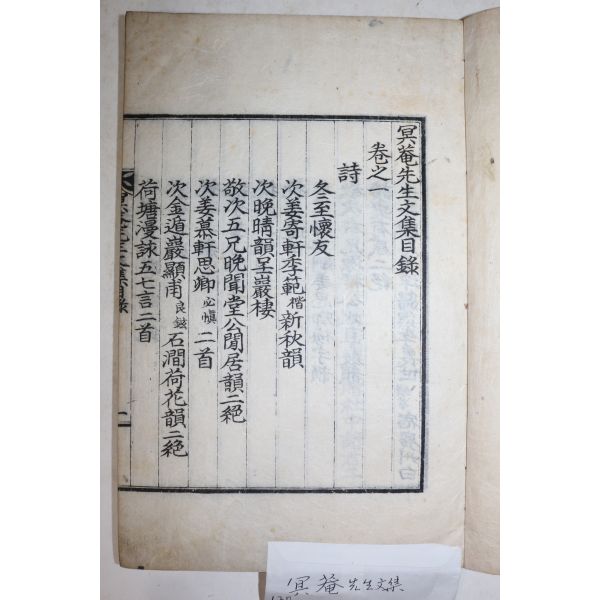 冥菴先生文集目錄
卷之一
詩
冬至懷友
次姜寄軒季範楷新秋韻
次晩晴韻呈巖棲
敬次五兄晩聞堂公閒居韻二絕
次姜慕軒思卿必愼二首
次金道巖顯甫良鉉石澗荷花韻二絕
荷塘漫詠五七言二首
集目錄
冥菴先生文集